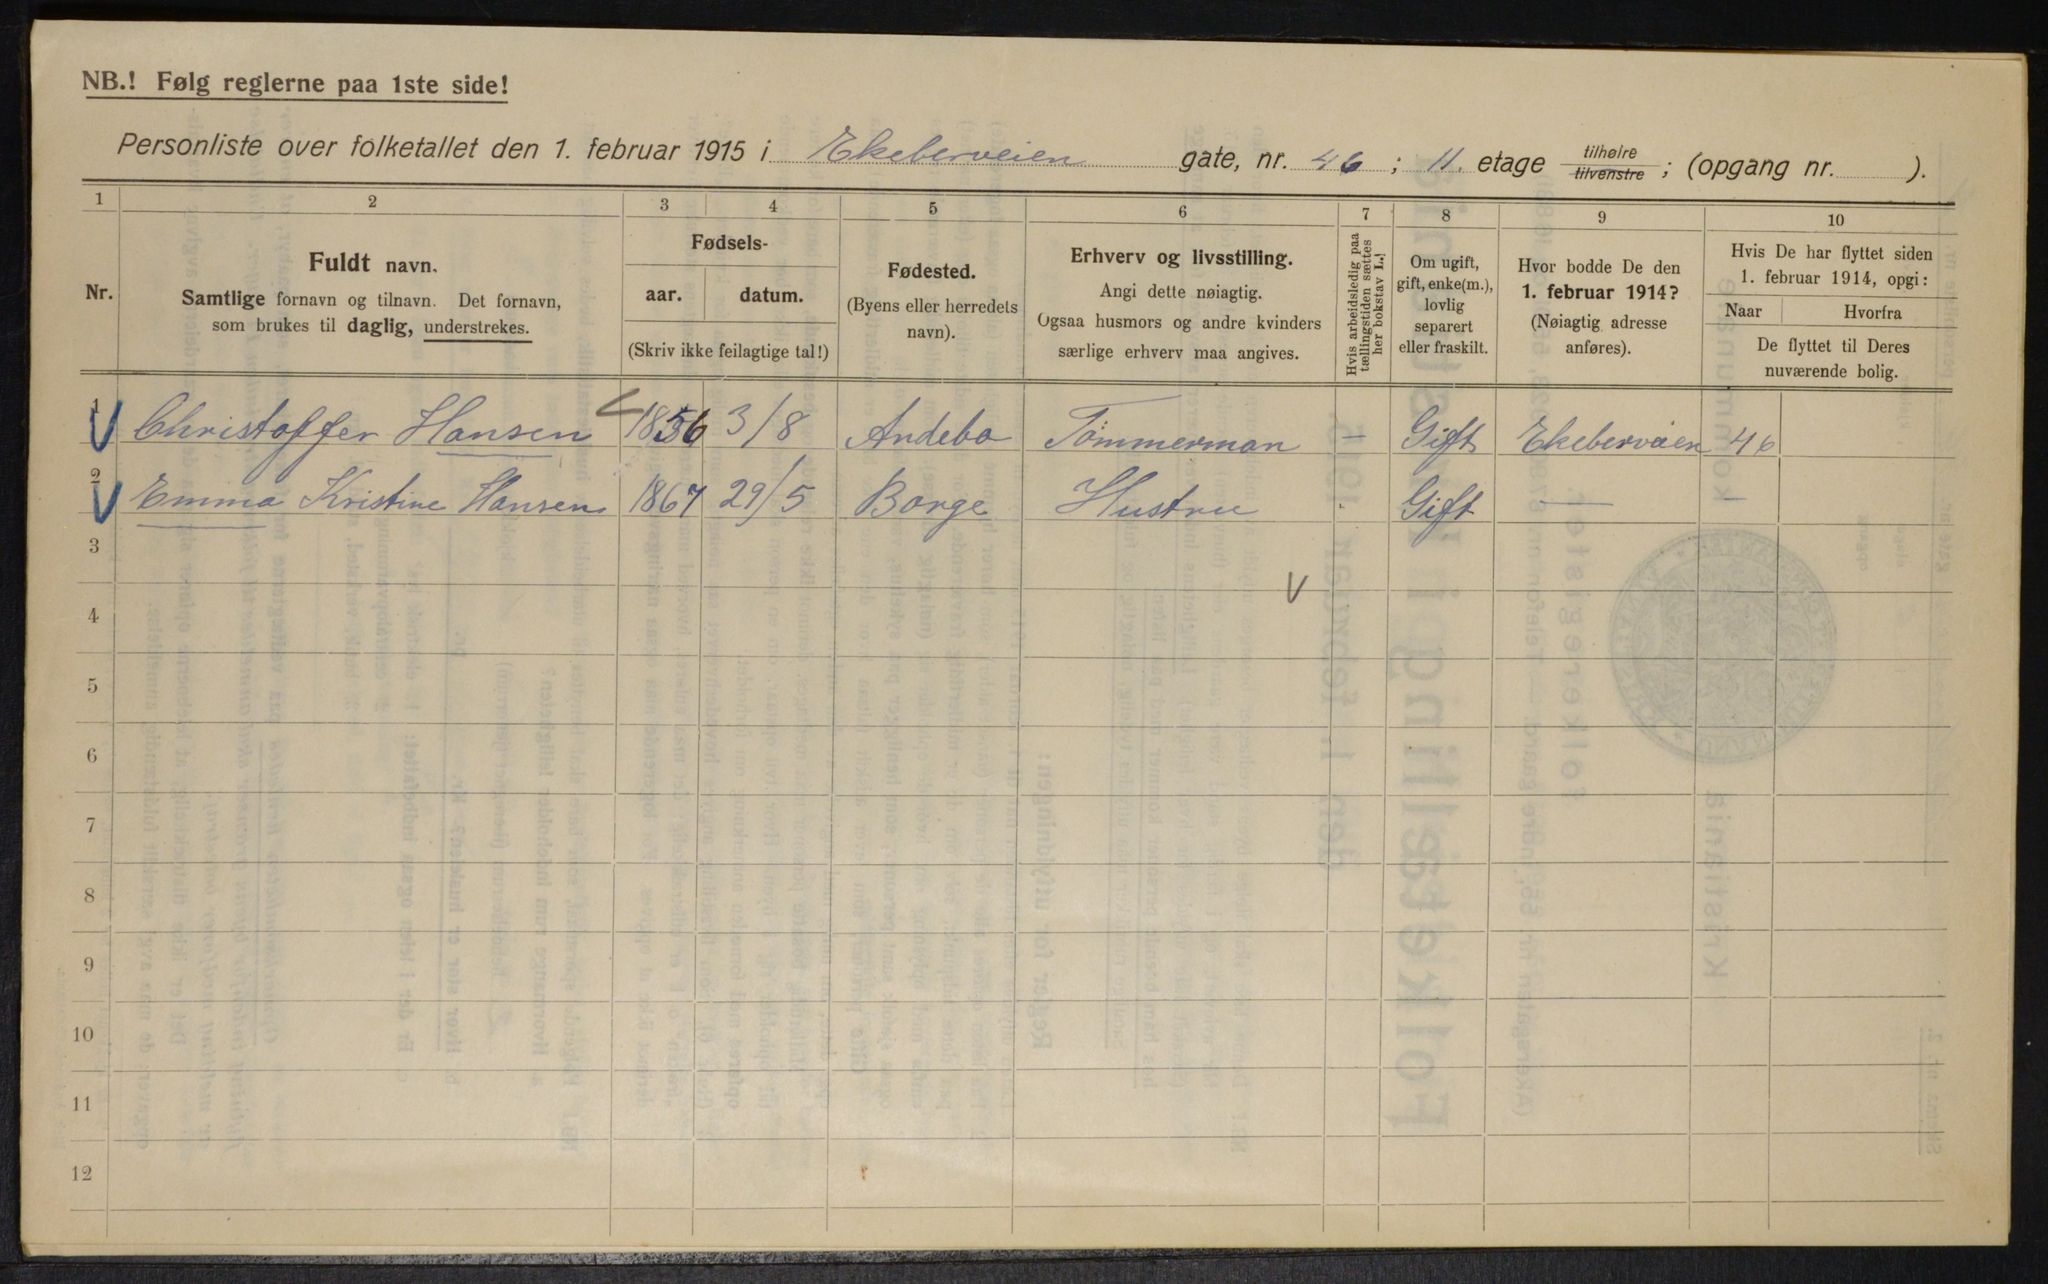 NB.! Følg reglerne paa 1ste side!
Personliste over folketallet den 1. februar 1915 i Ekeberveien gate, nr. 46 ; 11. etage tilhøire tilvenstre ; (opgang nr. ).
1 2 3 4 5 6 7 8 9 10
Nr.
Fuldt navn.
Samtlige fornavn og tilnavn. Det fornavn,
som brukes til daglig, understrekes.
Fødsels-
aar. datum.
(Skriv ikke feilagtige tal!)
Fødested.
(Byens eller herredets
navn).
Erhverv og livsstilling.
Angi dette nøiagtig.
Ogsaa husmors og andre kvinders
særlige erhverv maa angives.
Hvis arbeidsledig paa
tællingstiden sættes
her bokstav L.)
Om ugift,
gift, enke(m.),
lovlig
separert
eller fraskilt.
Hvor bodde De den
1. februar 1914?
(Nøiagtig adresse
anføres).
Hvis De har flyttet siden
1. februar 1914, opgi:
Naar Hvorfra
De flyttet til Deres
nuværende bolig.
1 Christoffer Hansen 1856 3/8 Andebo Tømmerman – Gift Ekeberveien 46
2 Emma Kristine Hansen 1867 29/5 Borge Hustru Gift —
3
4
5
6
7
8
9
10
11
12